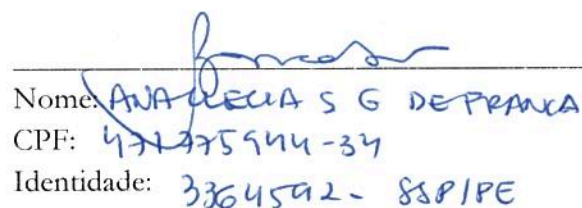 Nome: ANA CLECIA S G DE FRANCA
CPF: 471775944-34
Identidade: 3364592 - SSP/PE